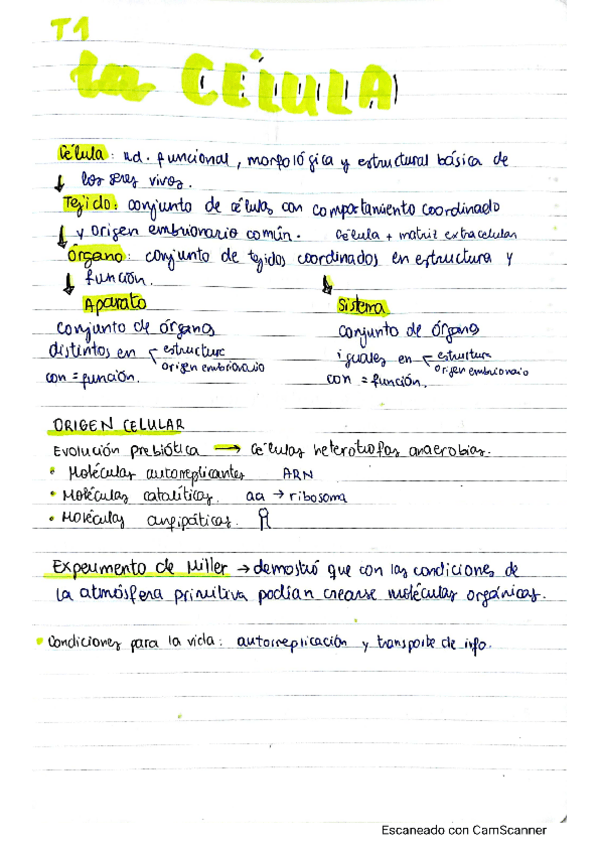 T1
la CÉLULA
Célula: ud. funcional, morfológica y estructural básica de
los seres vivos.
Tejido: conjunto de células con comportamiento coordinado
y origen embrionario común. Célula + matriz extracelular
Órgano: conjunto de tejidos coordinados en estructura y
función.
Aparato
Sistema
conjunto de órganos
distintos en estructura
origen embrionario
con = función.
conjunto de órganos
iguales en estructura
origen embrionario
con = función.
ORIGEN CELULAR
Evolución prebiótica → células heterótrofas anaerobias.
• Moléculas autorreplicantes ARN
• Moléculas catalíticas. aa → ribosoma
• Moléculas anfipáticas.
Experimento de Miller → demostró que con las condiciones de
la atmósfera primitiva podían crearse moléculas orgánicas.
• Condiciones para la vida: autorreplicación y transporte de info.
Escaneado con CamScanner